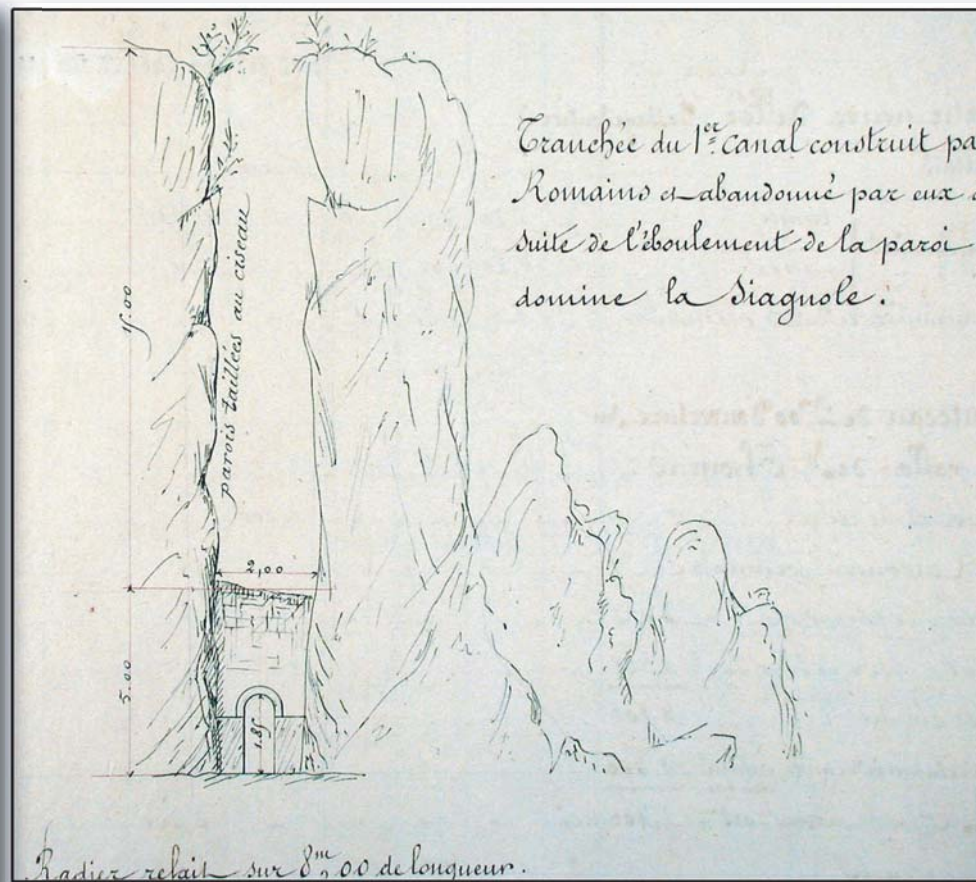 Tranchée du 1er Canal construit pa
Romains et abandonné par eux
suite de l'éboulement de la paroi
domine la Siagnole.
15.00
parois taillées au ciseau
2,00
5.00
1.85
Radier refait sur 8m,00 de longueur.